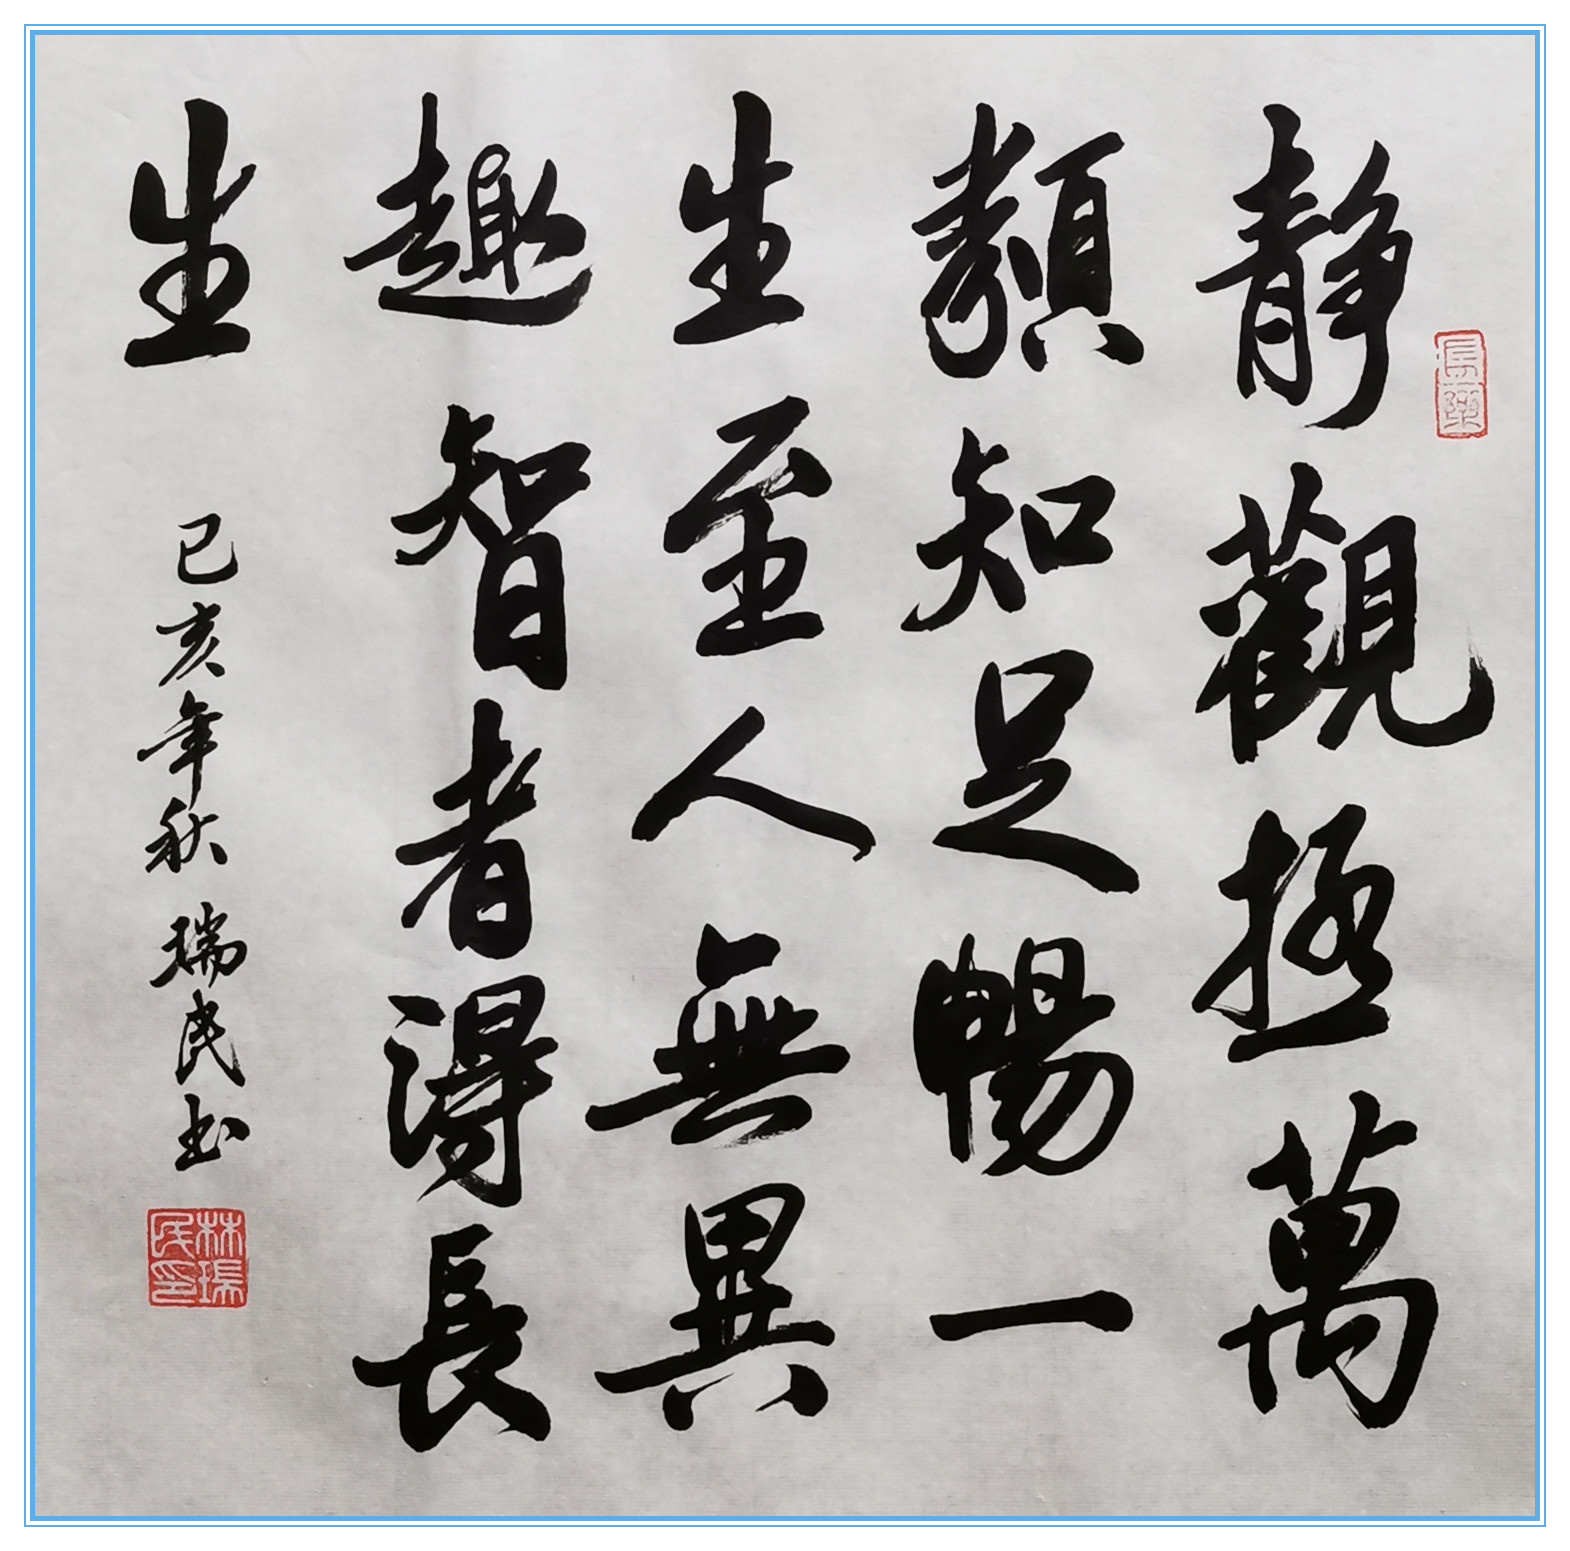 靜觀極萬
類知足暢一
生至人無異
趣智者得長
生
己亥年秋 瑞民书
林瑞民印